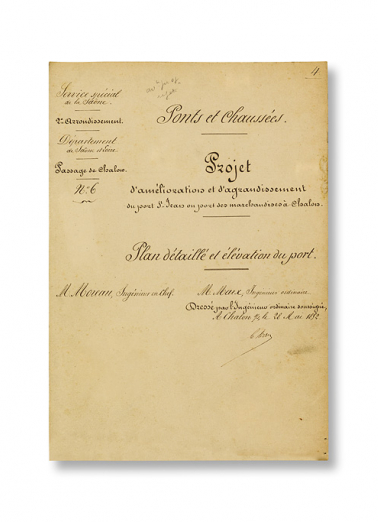 4
Service spécial
de la Saône.
2e Arrondissement.
Département
de Saône et Loire.
Passage de Chalon.
N° 6
Ponts et Chaussées.
Projet
d'amélioration et d'agrandissement
du port St Jean ou port des marchandises à Chalon.
Plan détaillé et élévation du port.
M. Moreau, Ingénieur en Chef.
M. Ingénieur ordinaire
Dressé par l'Ingénieur ordinaire soussigné,
A Chalon s/s le 21 Mai